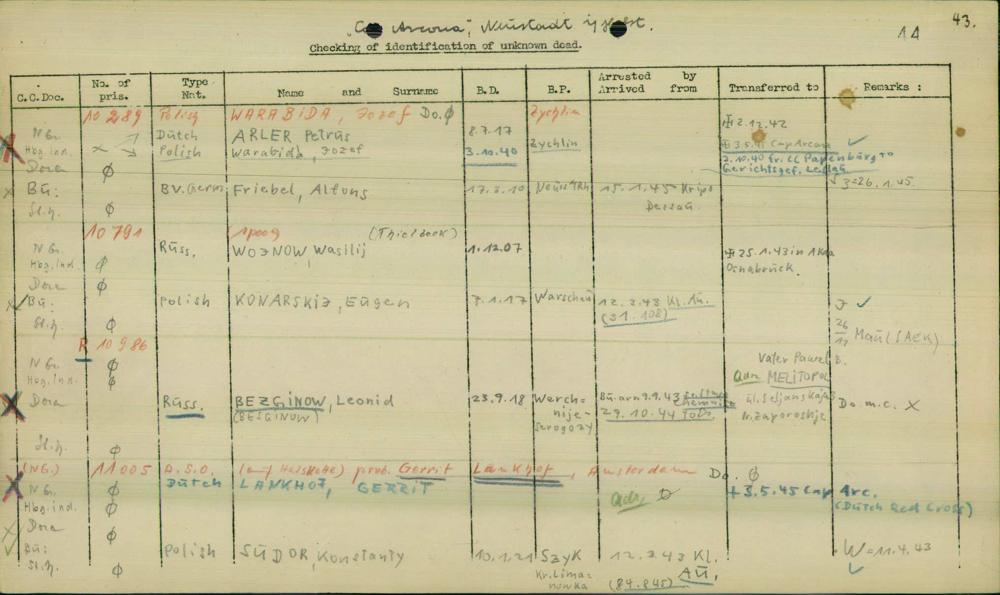 "Cap Arcona", Neustadt i/Holst.
14
43.
Checking of identification of unknown dead.
C.C.Doc. No. of pris. Type Nat. Name and Surname B.D. B.P. Arrested by Arrived from Transferred to Remarks :
10289 Polish WARABIDA, Jozef Do.Ø Zychlin
N Gr. Dutch ARLER Petrus 8.7.17 ✠ 2.12.42
Hbg.ind. Polish Warabida, Jozef 3.10.40 Zychlin ✠ 3.5.45 Cap Arcona ✓
2.10.40 fr. CC Papenburg to
Dora Ø Gerichtsgef. Leslau
Bü: BV.Germ. Friebel, Alfons 17.3.10 Neuss/Rh 15.1.45 Kripo Dessau. 26.1.45
St.h. Ø
10791 (Thielbeck)
N Gr. Russ. WOJNOW, Wasilij 1.12.07 ✠ 25.1.43 in
Hbg.ind. Ø Osnabrück.
Dora Ø
Bü: Polish KONARSKI, Eugen 7.1.17 Warschau 12.3.43 Kl. Au. J ✓
St.h. Ø (31.108) 26/11 Mau (SAEK)
R 10986
N Gr. Ø Vater Pawel
Hbg.ind. Ø Adr. MELITOPOL
X Dora Russ. BEZGINOW, Leonid 23.9.18 Werch- Bu. arr. 9.9.43 Do. m.c. X
(BESGINOW) nije- 29.10.44
Serogozy
St.h. Ø
(NG.) 11005 A.S.O. (auf Halskette) prob. Gerrit Lankhof, Amsterdam Do. Ø
X N Gr. Ø Dutch LANKHOF, GERRIT + 3.5.45 Cap Arc.
Hbg.ind. Ø Adr. Ø (Dutch Red Cross)
Dora Ø
Bü: Polish SUDOR, Konstanty 10.1.21 Szyk 12.3.43 Kl. W = 11.4.43
St.h. Ø Kr. Lima- Au. ✓
nowka (84.845)